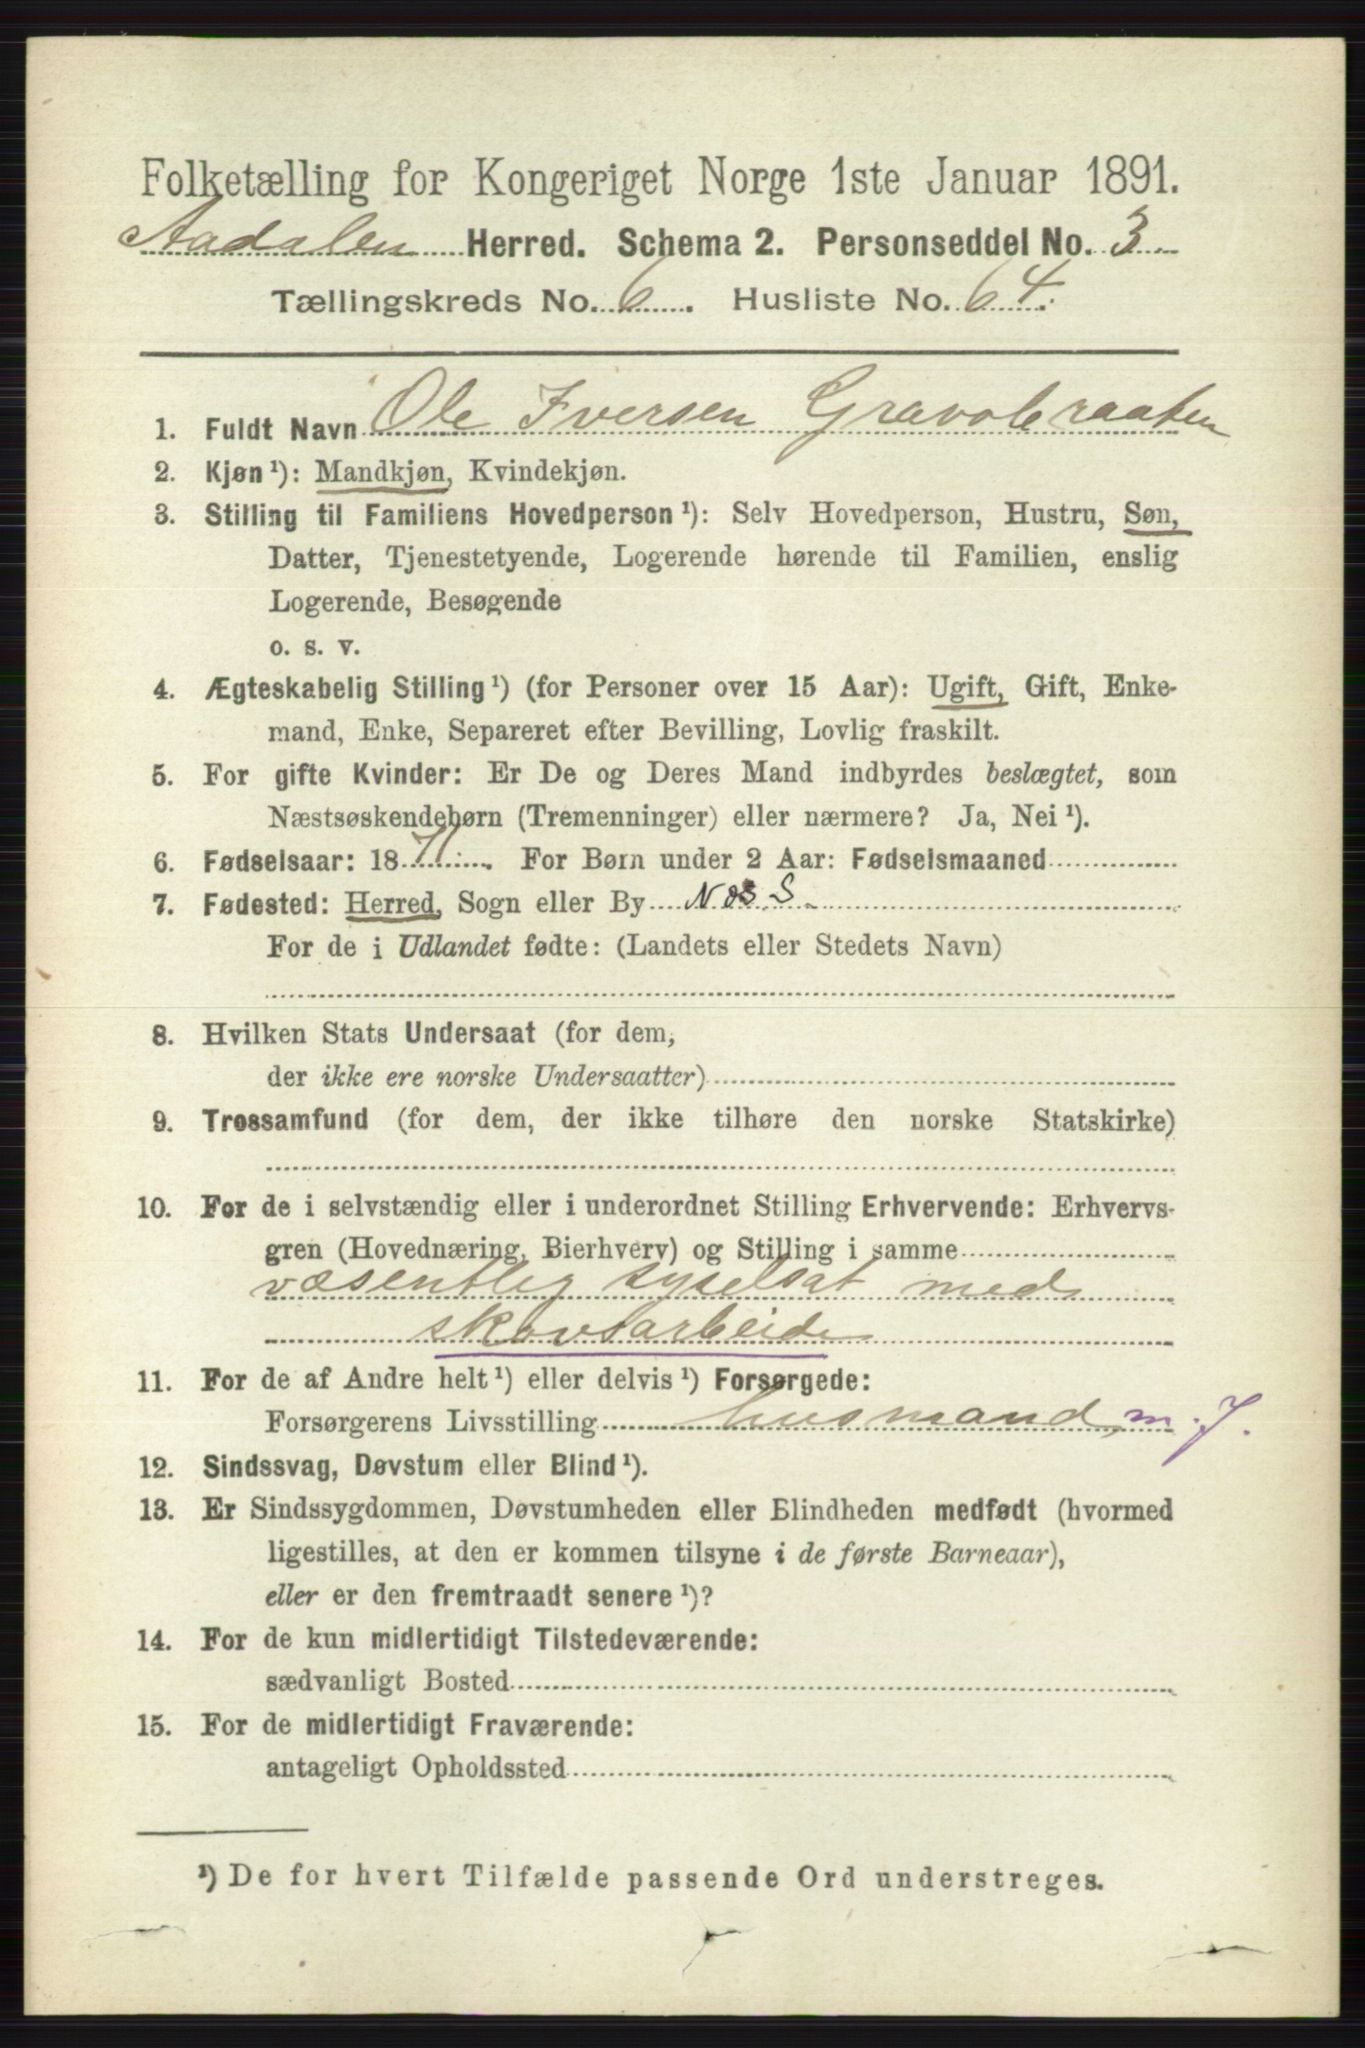 Folketælling for Kongeriget Norge 1ste Januar 1891.
Aadalen Herred. Schema 2. Personseddel No. 3
Tællingskreds No. 6. Husliste No. 64.
1. Fuldt Navn Ole Iversen Gravobraaten
2. Kjøn ¹): Mandkjøn, Kvindekjøn.
3. Stilling til Familiens Hovedperson ¹): Selv Hovedperson, Hustru, Søn,
Datter, Tjenestetyende, Logerende hørende til Familien, enslig
Logerende, Besøgende
o. s. v.
4. Ægteskabelig Stilling ¹) (for Personer over 15 Aar): Ugift, Gift, Enke-
mand, Enke, Separeret efter Bevilling, Lovlig fraskilt.
5. For gifte Kvinder: Er De og Deres Mand indbyrdes beslægtet, som
Næstsøskendebørn (Tremenninger) eller nærmere? Ja, Nei ¹).
6. Fødselsaar: 1871. For Børn under 2 Aar: Fødselsmaaned
7. Fødested: Herred, Sogn eller By N. S
For de i Udlandet fødte: (Landets eller Stedets Navn)
8. Hvilken Stats Undersaat (for dem,
der ikke ere norske Undersaatter)
9. Trossamfund (for dem, der ikke tilhøre den norske Statskirke)
10. For de i selvstændig eller i underordnet Stilling Erhvervende: Erhvervs-
gren (Hovednæring, Bierhverv) og Stilling i samme
væsentlig syselsat med
skovsarbeide
11. For de af Andre helt ¹) eller delvis ¹) Forsørgede:
Forsørgerens Livsstilling husmand, m. J.
12. Sindssvag, Døvstum eller Blind ¹).
13. Er Sindssygdommen, Døvstumheden eller Blindheden medfødt (hvormed
ligestilles, at den er kommen tilsyne i de første Barneaar),
eller er den fremtraadt senere ¹)?
14. For de kun midlertidigt Tilstedeværende:
sædvanligt Bosted
15. For de midlertidigt Fraværende:
antageligt Opholdssted
¹) De for hvert Tilfælde passende Ord understreges.